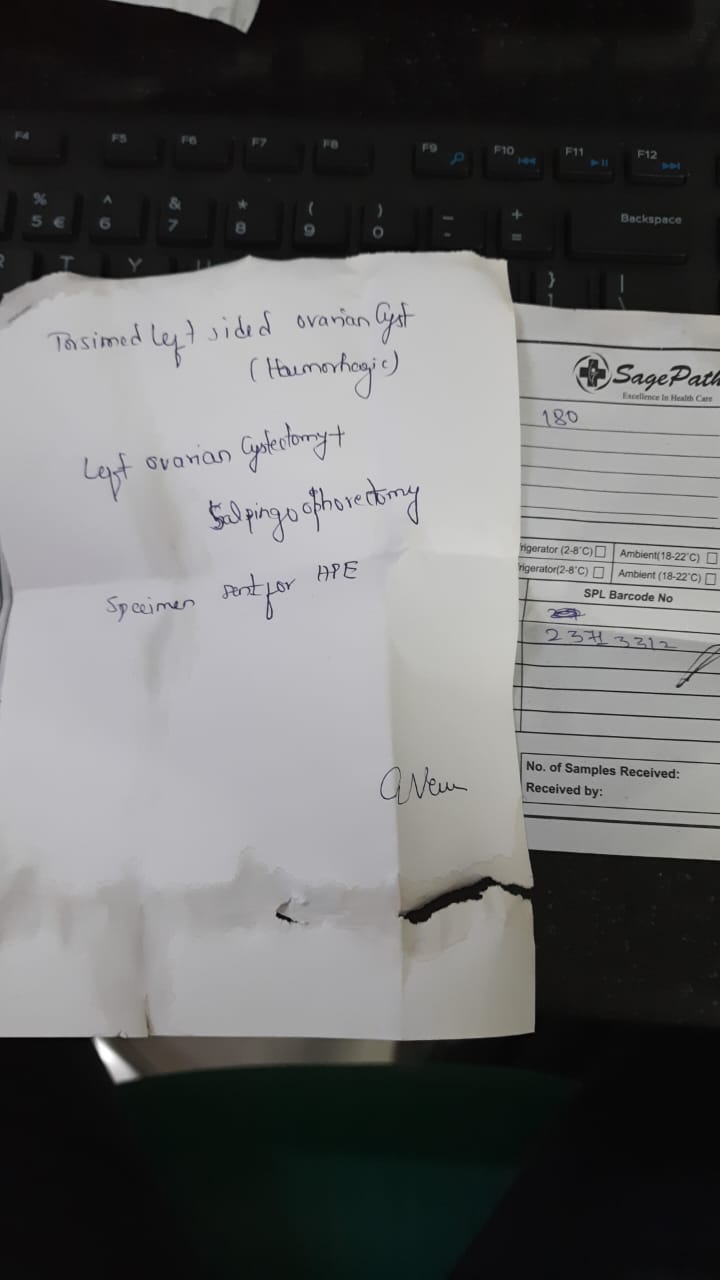 F4 F5 F6 F7 F8 F9 F10 F11 F12
% ^ & * ( ) _ +
5 € 6 7 8 9 0 - = Backspace
R T Y U } |
Torsimed left sided ovarian Cyst
(Haemorhagic)
Left ovarian Cystectomy +
Salpingoophorectomy
Specimen sent for HPE
SagePath
Excellence In Health Care
180
rigerator (2-8°C) Ambient(18-22°C)
rigerator(2-8°C) Ambient (18-22°C)
SPL Barcode No
23713312
No. of Samples Received:
Received by: